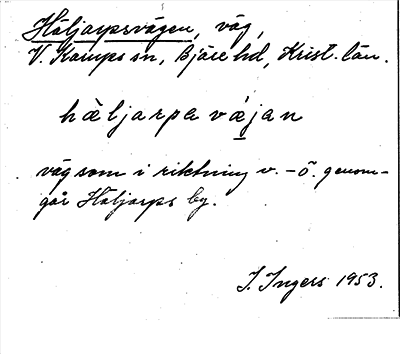 Häljarpsvägen, väg,
V. Karups sn, Bjäre hd, Krist. län.
hàljarpa vájan
väg som i riktning v. - ö. genom-
går Häljarps by.
I. Ingers 1953.